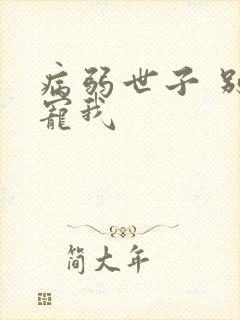 病弱世子 别
宠我
简大年